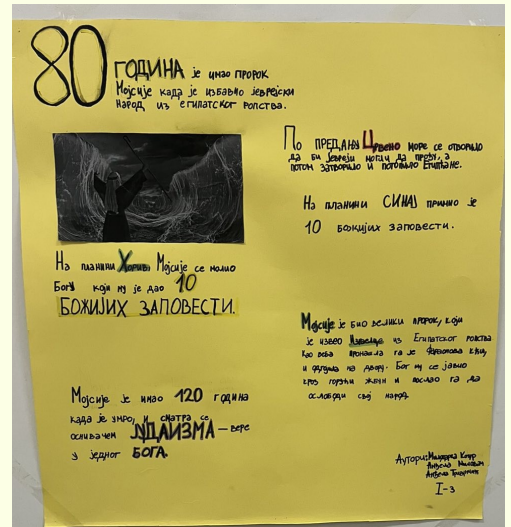 80 ГОДИНА је имао пророк
Мојсије када је избавио јеврејски
народ из египатског ропства.
По предању Црвено море се отворило
да би Јевреји могли да прођу, а
потом затворило и потопило Египћане.
На планини СИНАЈ примио је
10 божијих заповести.
На планини Хорив Мојсије се молио
Богу који му је дао 10
БОЖИЈИХ ЗАПОВЕСТИ.
Мојсије је био велики пророк, који
је извео из Египатског ропства
Као беба пронашла га је фараонова кћи,
и одгуила на двору. Бог му се јавио
кроз горући жбун и послао га да
ослободи свој народ.
Мојсије је имао 120 година
када је умро, и сматра се
оснивачем ЈУДАИЗМА – вере
у једног БОГА.
Аутори:
Анђела
Анђела
I-3